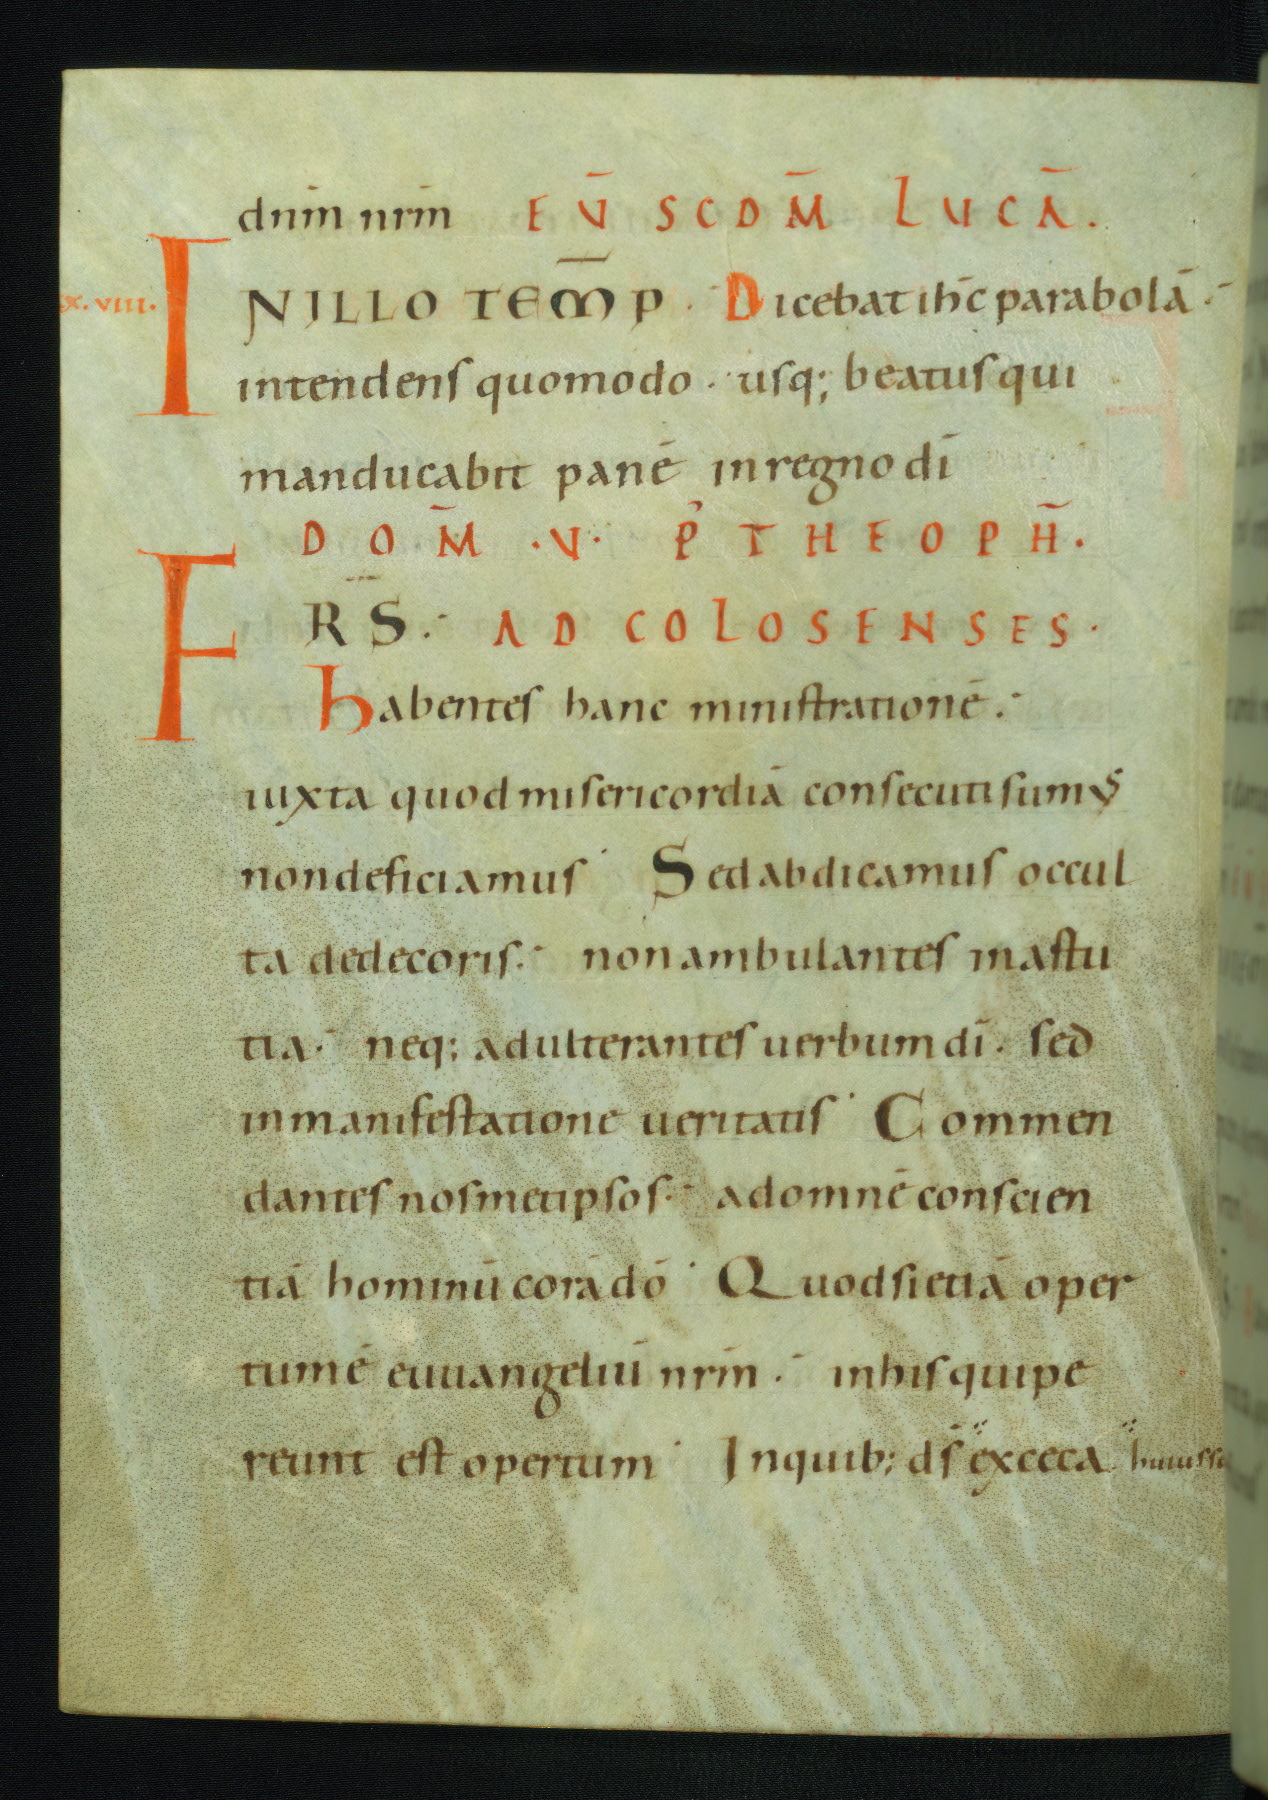 dn̄m nr̄m EV̄ SCDM̄ LUCĀ.
x.viii. INILLO TEM̄P. Dicebat ih̄c parabolā.
intendens quomodo. usq; beatus qui
manducabit panē in regno dī
DOM̄ .V. P̉ THEOPH̄.
FR̄S̄. AD COLOSENSES.
habentes hanc ministrationē.
iuxta quod misericordiā consecuti sumus
non deficiamus Sed abdicamus occul
ta dedecoris. non ambulantes in astu
tia. neq; adulterantes uerbum dī. sed
in manifestatione ueritatis Commen
dantes nosmetipsos. ad omnē conscien
tiā hominū corā dō Quod si etiā oper
tum ē euuangeliū nr̄m. in his qui pe
reunt est opertum Inquib; ds̄ exceca huius